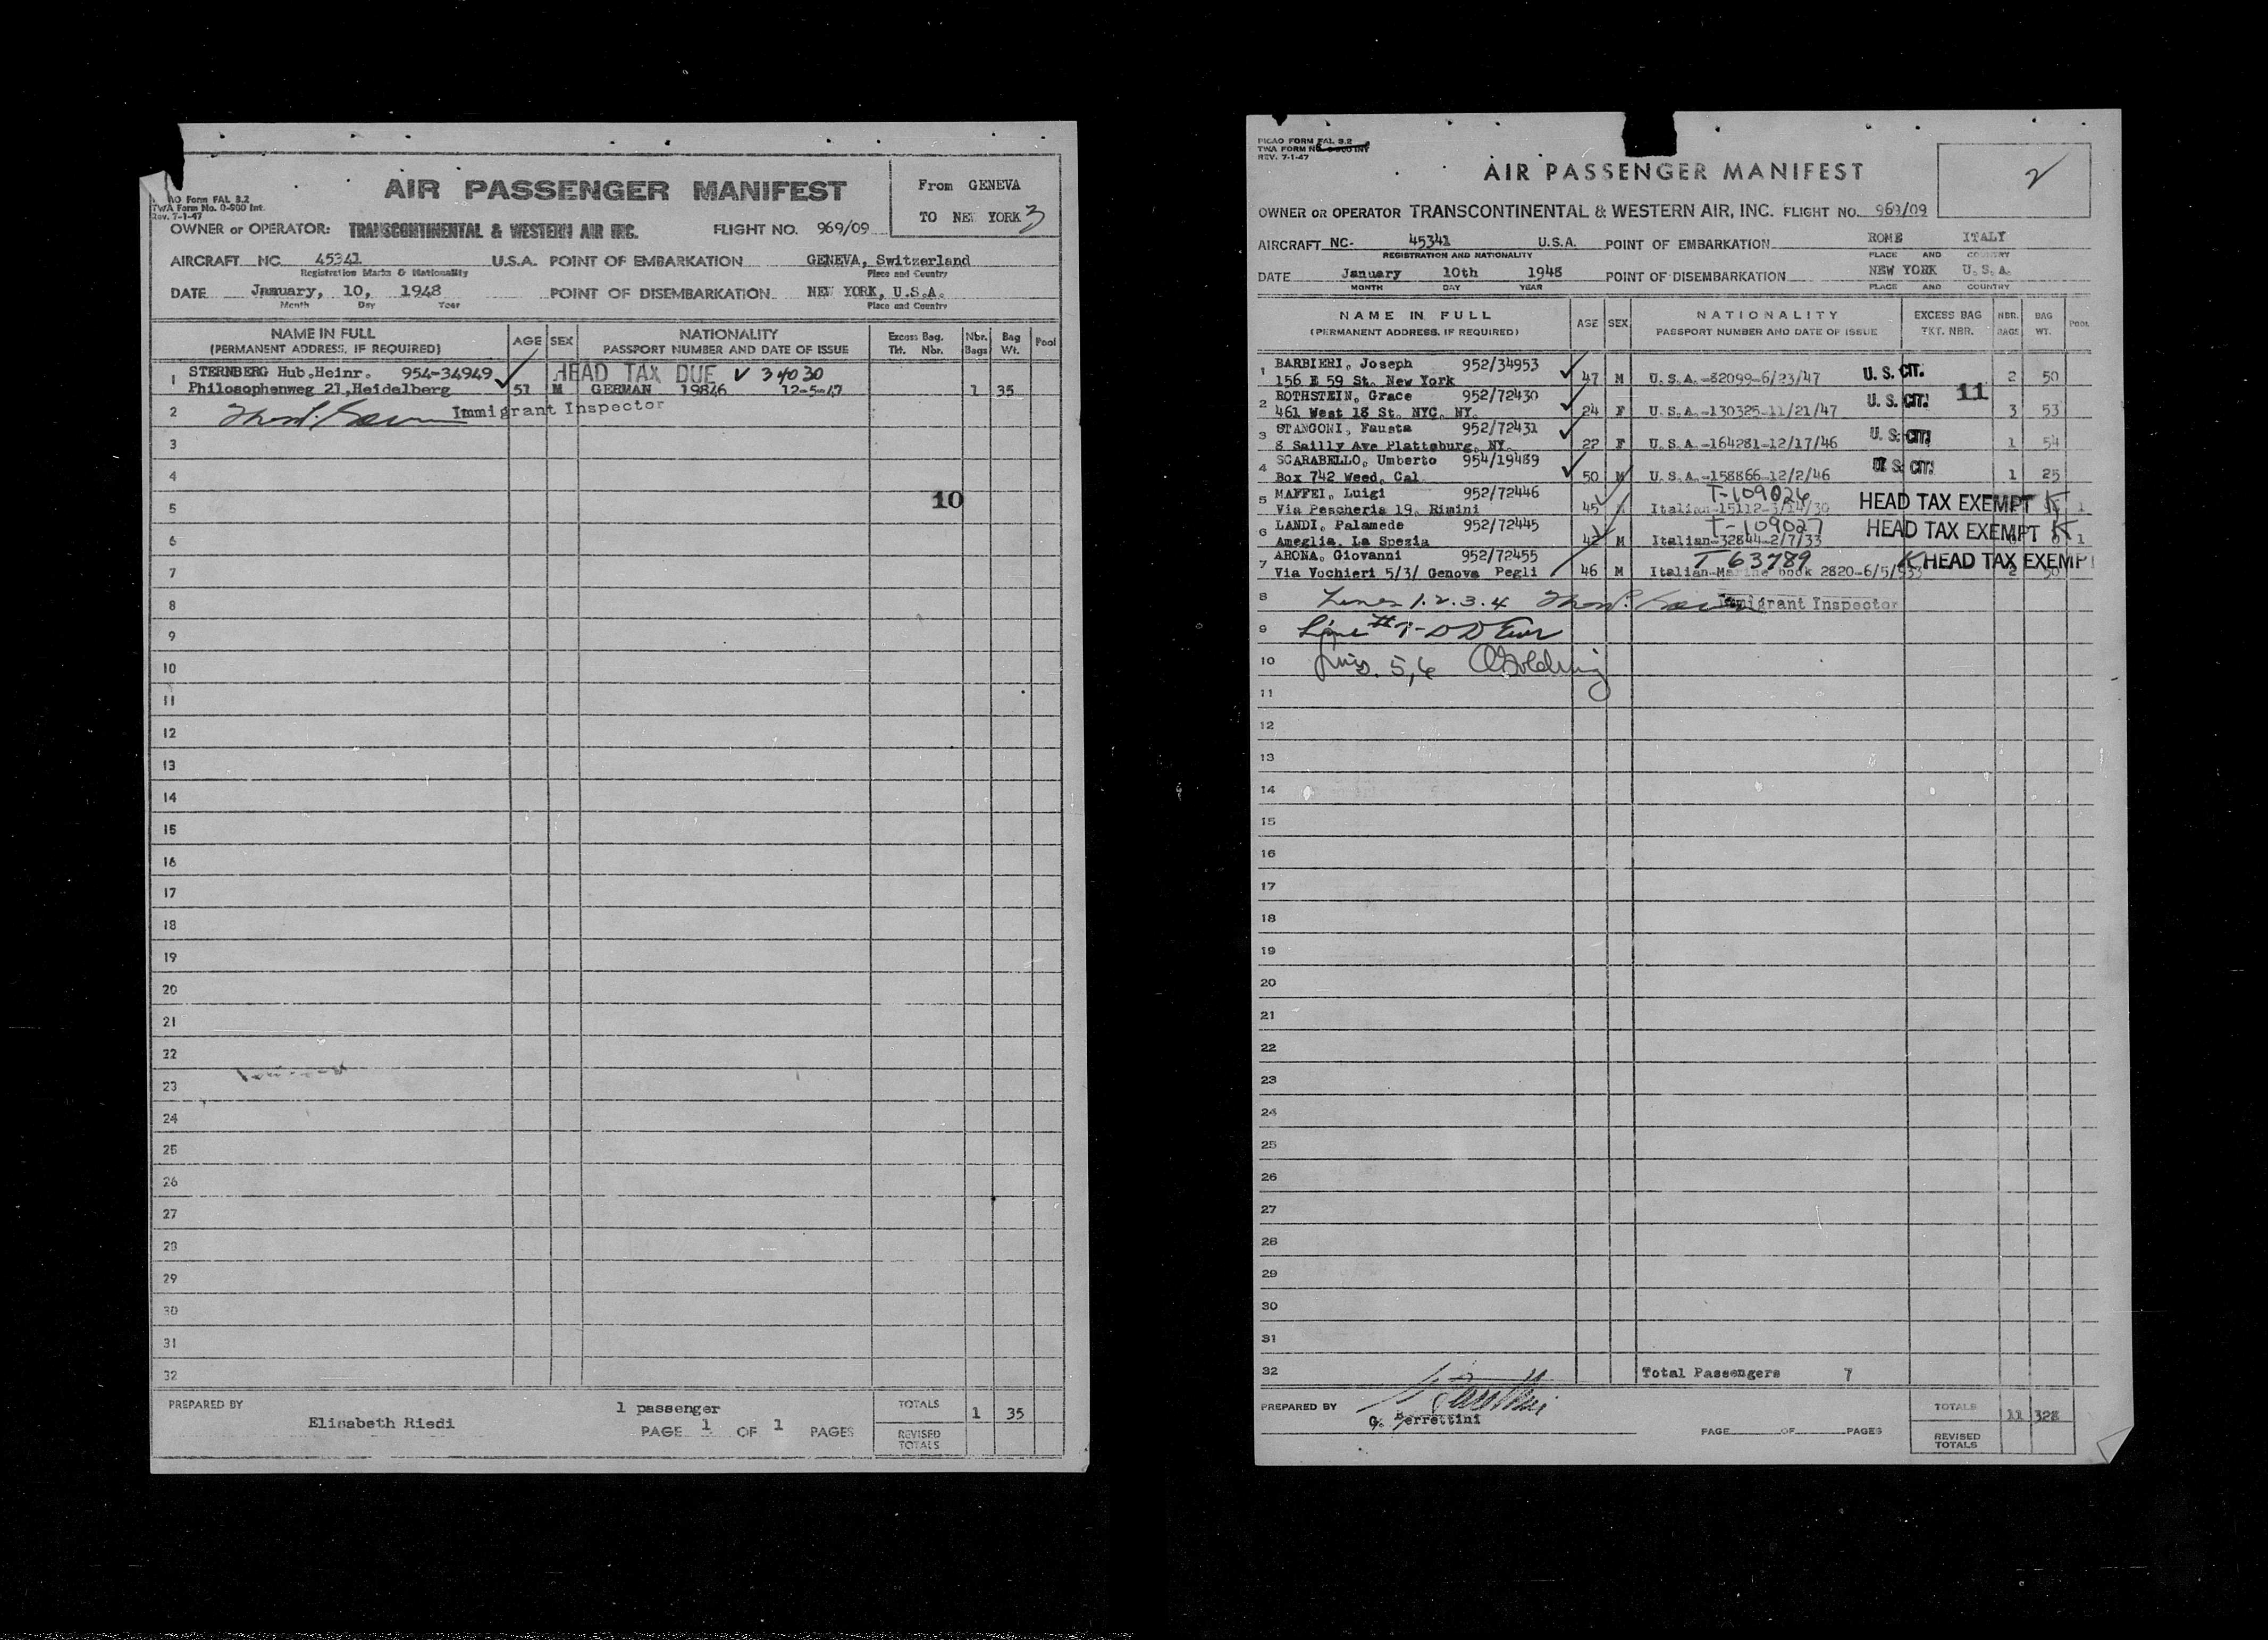 AO Form FAL 3.2
TWA Form No. 0-900 Int.
Rev. 7-1-47
AIR PASSENGER MANIFEST
From GENEVA
TO NEW YORK 3
OWNER or OPERATOR: TRANSCONTINENTAL & WESTERN AIR INC. FLIGHT NO. 969/09
AIRCRAFT NC 45341 U.S.A. POINT OF EMBARKATION GENEVA, Switzerland
Registration Marks & Nationality Place and Country
DATE January, 10, 1948 POINT OF DISEMBARKATION NEW YORK, U.S.A.
Month Day Year Place and Country
NAME IN FULL AGE SEX NATIONALITY Excess Bag. Nbr. Bag Pool
(PERMANENT ADDRESS, IF REQUIRED) PASSPORT NUMBER AND DATE OF ISSUE Tkt. Nbr. Bags Wt.
1 STERNBERG Hub.Heinr. 954-34949 HEAD TAX DUE ✓ 34030
Philosophenweg 21,Heidelberg 51 M GERMAN 19846 12-5-47 1 35
2 Immigrant Inspector
3
4
5 10
6
7
8
9
10
11
12
13
14
15
16
17
18
19
20
21
22
23
24
25
26
27
28
29
30
31
32
PREPARED BY Elisabeth Riedi
1 passenger
PAGE 1 OF 1 PAGES
TOTALS 1 35
REVISED TOTALS
PICAO FORM FAL 3.2
TWA FORM
REV. 7-1-47
AIR PASSENGER MANIFEST
2
OWNER OR OPERATOR TRANSCONTINENTAL & WESTERN AIR, INC. FLIGHT NO. 969/09
AIRCRAFT NC- 45341 U.S.A. POINT OF EMBARKATION ROME ITALY
REGISTRATION AND NATIONALITY PLACE AND COUNTRY
DATE January 10th 1948 POINT OF DISEMBARKATION NEW YORK U.S.A.
MONTH DAY YEAR PLACE AND COUNTRY
NAME IN FULL AGE SEX NATIONALITY EXCESS BAG NBR. BAG POOL
(PERMANENT ADDRESS, IF REQUIRED) PASSPORT NUMBER AND DATE OF ISSUE TKT. NBR. BAGS WT.
1 BARBIERI, Joseph 952/34953
156 E 59 St. New York 47 M U.S.A.-82099-6/23/47 U.S. CIT. 2 50
2 ROTHSTEIN, Grace 952/72430 11
461 West 18 St. NYC. NY. 24 F U.S.A-130325-11/21/47 U.S. CIT. 3 53
3 STANGONI, Fausta 952/72431
8 Sailly Ave Plattsburg. NY. 22 F U.S.A-164281-12/17/46 U.S. CIT. 1 54
4 SCARABELLO, Umberto 954/19489
Box 742 Weed. Cal 50 M U.S.A.-158866-12/2/46 U.S. CIT. 1 25
5 MAFFEI, Luigi 952/72446 T-109026
Via Pescheria 19. Rimini 45 Italian-15112-3/14/30 HEAD TAX EXEMPT K 1
6 LANDI, Palamede 952/72445 T-109027
Ameglia. La Spezia 42 M Italian-32844-2/7/33 HEAD TAX EXEMPT K 1
7 ARONA, Giovanni 952/72455 T 63789
Via Vochieri 5/3/ Genova Pegli 46 M Italian-Marine book 2820-6/5/933 K HEAD TAX EXEMPT 2 50
8 Lines 1.2.3.4 Immigrant Inspector
9 Line #7-
10 Lines. 5,6 Golding
11
12
13
14
15
16
17
18
19
20
21
22
23
24
25
26
27
28
29
30
31
32 Total Passengers 7
PREPARED BY G. Berrettini
PAGE OF PAGES
TOTALS 11 328
REVISED TOTALS